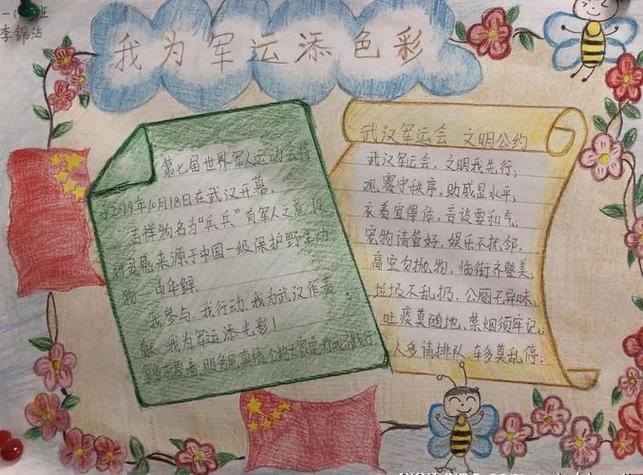 李锦洁
我为军运添色彩
第七届世界军人运动会将
于2019年10月18日在武汉开幕。
吉祥物名为“兵兵”有军人之意,设
计灵感来源于中国一级保护野生动
物—中华鲟。
我参与,我行动,我为武汉作贡
献,我为军运添光彩!
武汉军运会 文明公约
武汉军运会,文明我先行;
观赛守秩序,助威显水平;
衣着宜得体,言谈要和气;
宠物请管好,娱乐不扰邻;
高空勿抛物,临街齐整美;
垃圾不乱扔,公厕无异味;
吐痰莫随地,禁烟须牢记;
人多请排队,车多莫乱停。